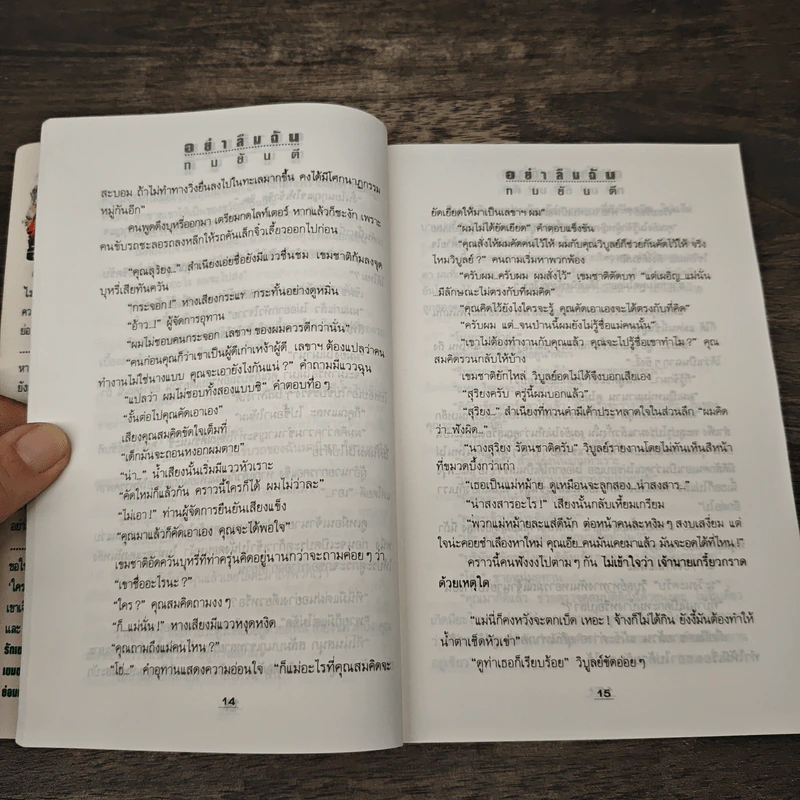 อย่าลืมฉัน
ทมยันตี
สะบอม ถ้าไม่ทำทางวิ่งยื่นลงไปในทะเลมากขึ้น คงได้มีโศกนาฏกรรม
หมู่กันอีก"
คนพูดดึงบุหรี่ออกมา เตรียมกดไลท์เตอร์ หากแล้วก็ชะงัก เพราะ
คนขับรถชะลอรถลงหลีกให้รถคันเล็กจิ๋วเลี้ยวออกไปก่อน
"คุณสุริยง..." สำเนียงเอยชื่อยังมีแววชื่นชม เขมชาติก้มลงจุด
บุหรี่เสียทันควัน
"กระจอก!" หางเสียงกระแท กระทั้นอย่างดูหมิ่น
"อ้าว..!" ผู้จัดการอุทาน
"ผมไม่ชอบคนกระจอก เลขาฯ ของผมควรดีกว่านั้น"
"คนก่อนคุณก็ว่าเขาเป็นผู้ดีเก่าเหง้าผู้ดี เลขาฯ ต้องแปลว่าคน
ทำงานไม่ใช่นางแบบ คุณจะเอายังไงกันแน่ ?" คำถามมีแววฉุน
"แปลว่า ผมไม่ชอบทั้งสองแบบซิ" คำตอบทื่อ ๆ
"งั้นต่อไปคุณคัดเอาเอง"
เสียงคุณสมคิดขัดใจเต็มที่
"เด็กมันจะถอนหงอกผมตาย"
"น่า..." น้ำเสียงนั้นเริ่มมีแววหัวเราะ
"คัดใหม่ก็แล้วกัน คราวนี้ใครก็ได้ ผมไม่ว่าละ"
"ไม่เอา!" ท่านผู้จัดการยืนยันเสียงแข็ง
"คุณมาแล้วก็คัดเอาเอง คุณจะได้พอใจ"
เขมชาติอัดควันบุหรี่ที่ท่าครุ่นคิดอยู่นานกว่าจะถามค่อย ๆ ว่า
"เขาชื่ออะไรนะ ?"
"ใคร ?" คุณสมคิดถามงง ๆ
"ก็...แม่นั่น!" หางเสียงมีแววหงุดหงิด
"คุณถามถึงแม่คนไหน ?"
"โธ่..." คำอุทานแสดงความอ่อนใจ "ก็แม่อะไรที่คุณสมคิดจะ
14
อย่าลืมฉัน
ทมยันตี
ยัดเยียดให้มาเป็นเลขาฯ ผม"
"ผมไม่ได้ยัดเยียด" คำตอบแข็งขัน
"คุณสั่งให้ผมคัดคนไว้ให้ ผมกับคุณวิบูลย์ก็ช่วยกันคัดไว้ให้ จริง
ไหมวิบูลย์ ?" คนถามเริ่มหาพวกพ้อง
"ครับผม...ครับผม ผมสั่งไว้" เขมชาติตัดบท "แต่เผอิญ...แม่นั่น
มีลักษณะไม่ตรงกับที่ผมคิด"
"คุณคิดไว้ยังไงใครจะรู้ คุณคัดเอาเองจะได้ตรงกับที่คิด"
"ครับผม แต่...จนป่านนี้ผมยังไม่รู้ชื่อแม่คนนั้น"
"เขาไม่ต้องทำงานกับคุณแล้ว คุณจะไปรู้ชื่อเขาทำไม ?" คุณ
สมคิดรวนกลับให้บ้าง
เขมชาติยักไหล่ วิบูลย์อดไม่ได้จึงบอกเสียเอง
"สุริยงครับ ครู่นี้ผมบอกแล้ว"
"สุริยง..." สำเนียงที่ทวนคำมีเค้าประหลาดใจในส่วนลึก "ผมคิด
ว่า..ฟังผิด.."
"นางสุริยง รัตนชาติครับ" วิบูลย์รายงานโดยไม่ทันเห็นสีหน้า
ที่ขมวดบึ้งกว่าเก่า
"เธอเป็นแม่หม้าย ดูเหมือนจะลูกสอง...น่าสงสาร..."
"น่าสงสารอะไร!" เสียงนั้นกลับเหี้ยมเกรียม
"พวกแม่หม้ายละแส่ดีนัก ต่อหน้าคนละหงิม ๆ สงบเสงี่ยม แต่
ใจน่ะคอยชำเลืองหาใหม่ คุณเอ๊ย..คนมันเคยมาแล้ว มันจะอดได้ที่ไหน!"
คราวนี้คนฟังงงไปตาม ๆ กัน ไม่เข้าใจว่า เจ้านายเกรี้ยวกราด
ด้วยเหตุใด
"แม่นี่ก็คงหวังจะตกเบ็ด เหอะ! จ้างก็ไม่ได้กิน ยังงี้มันต้องทำให้
น้ำตาเช็ดหัวเข่า"
"ดูท่าเธอก็เรียบร้อย" วิบูลย์ขัดอ่อย ๆ
15